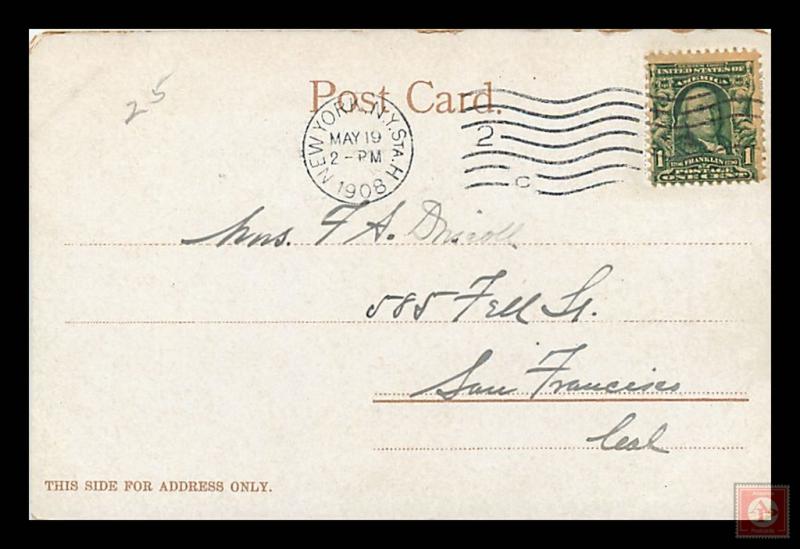 25
Post Card.
NEW YORK, N.Y. STA. H.
MAY 19
2 - PM
1908
2
C
UNITED STATES OF
AMERICA
1 FRANKLIN 1
POSTAGE
ONE CENT
Mrs. F A. Driscoll
585 Fell St.
San Francisco
Cal
THIS SIDE FOR ADDRESS ONLY.